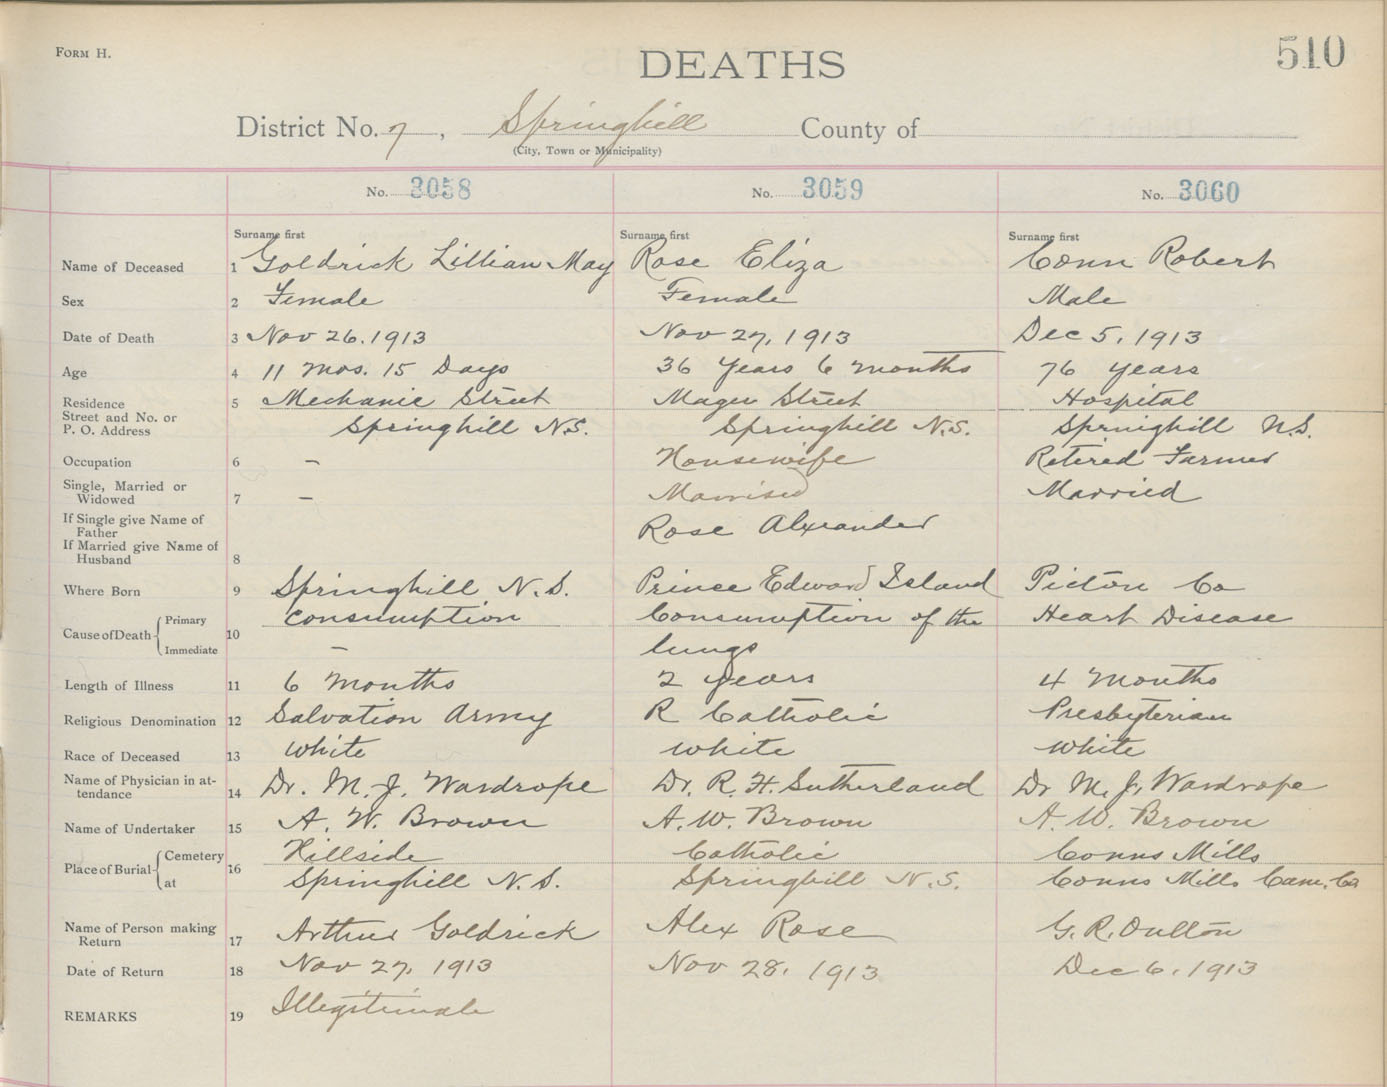 FORM H.
DEATHS
510
District No. 7, Springhill County of
(City, Town or Municipality)
No. 3058 No. 3059 No. 3060
Surname first Surname first Surname first
Name of Deceased 1 Goldrick Lillian May Rose Eliza Conn Robert
Sex 2 Female Female Male
Date of Death 3 Nov 26. 1913 Nov 27, 1913 Dec 5, 1913
Age 4 11 mos. 15 Days 36 Years 6 months 76 Years
Residence 5 Mechanic Street Street Hospital
Street and No. or
P. O. Address Springhill N.S. Springhill N.S. Springhill N.S.
Occupation 6 – Housewife Retired Farmer
Single, Married or
Widowed 7 – Married Married
If Single give Name of
Father Rose Alexander
If Married give Name of
Husband 8
Where Born 9 Springhill N.S. Prince Edward Island Pictou Co
Cause of Death Primary Consumption Consumption of the Heart Disease
10
Immediate – lungs
Length of Illness 11 6 Months 2 years 4 Months
Religious Denomination 12 Salvation Army R Catholic Presbyterian
Race of Deceased 13 White White White
Name of Physician in at-
tendance 14 Dr. M. J. Wardrope Dr. R. H. Sutherland Dr M. J. Wardrope
Name of Undertaker 15 A. W. Brown A. W. Brown A. W. Brown
Place of Burial Cemetery 16 Hillside Catholic Conns Mills
at Springhill N.S. Springhill N.S. Conns Mills Cum. Co
Name of Person making
Return 17 Arthur Goldrick Alex Rose G. R. Oulton
Date of Return 18 Nov 27, 1913 Nov 28, 1913 Dec 6, 1913
REMARKS 19 Illegitimate